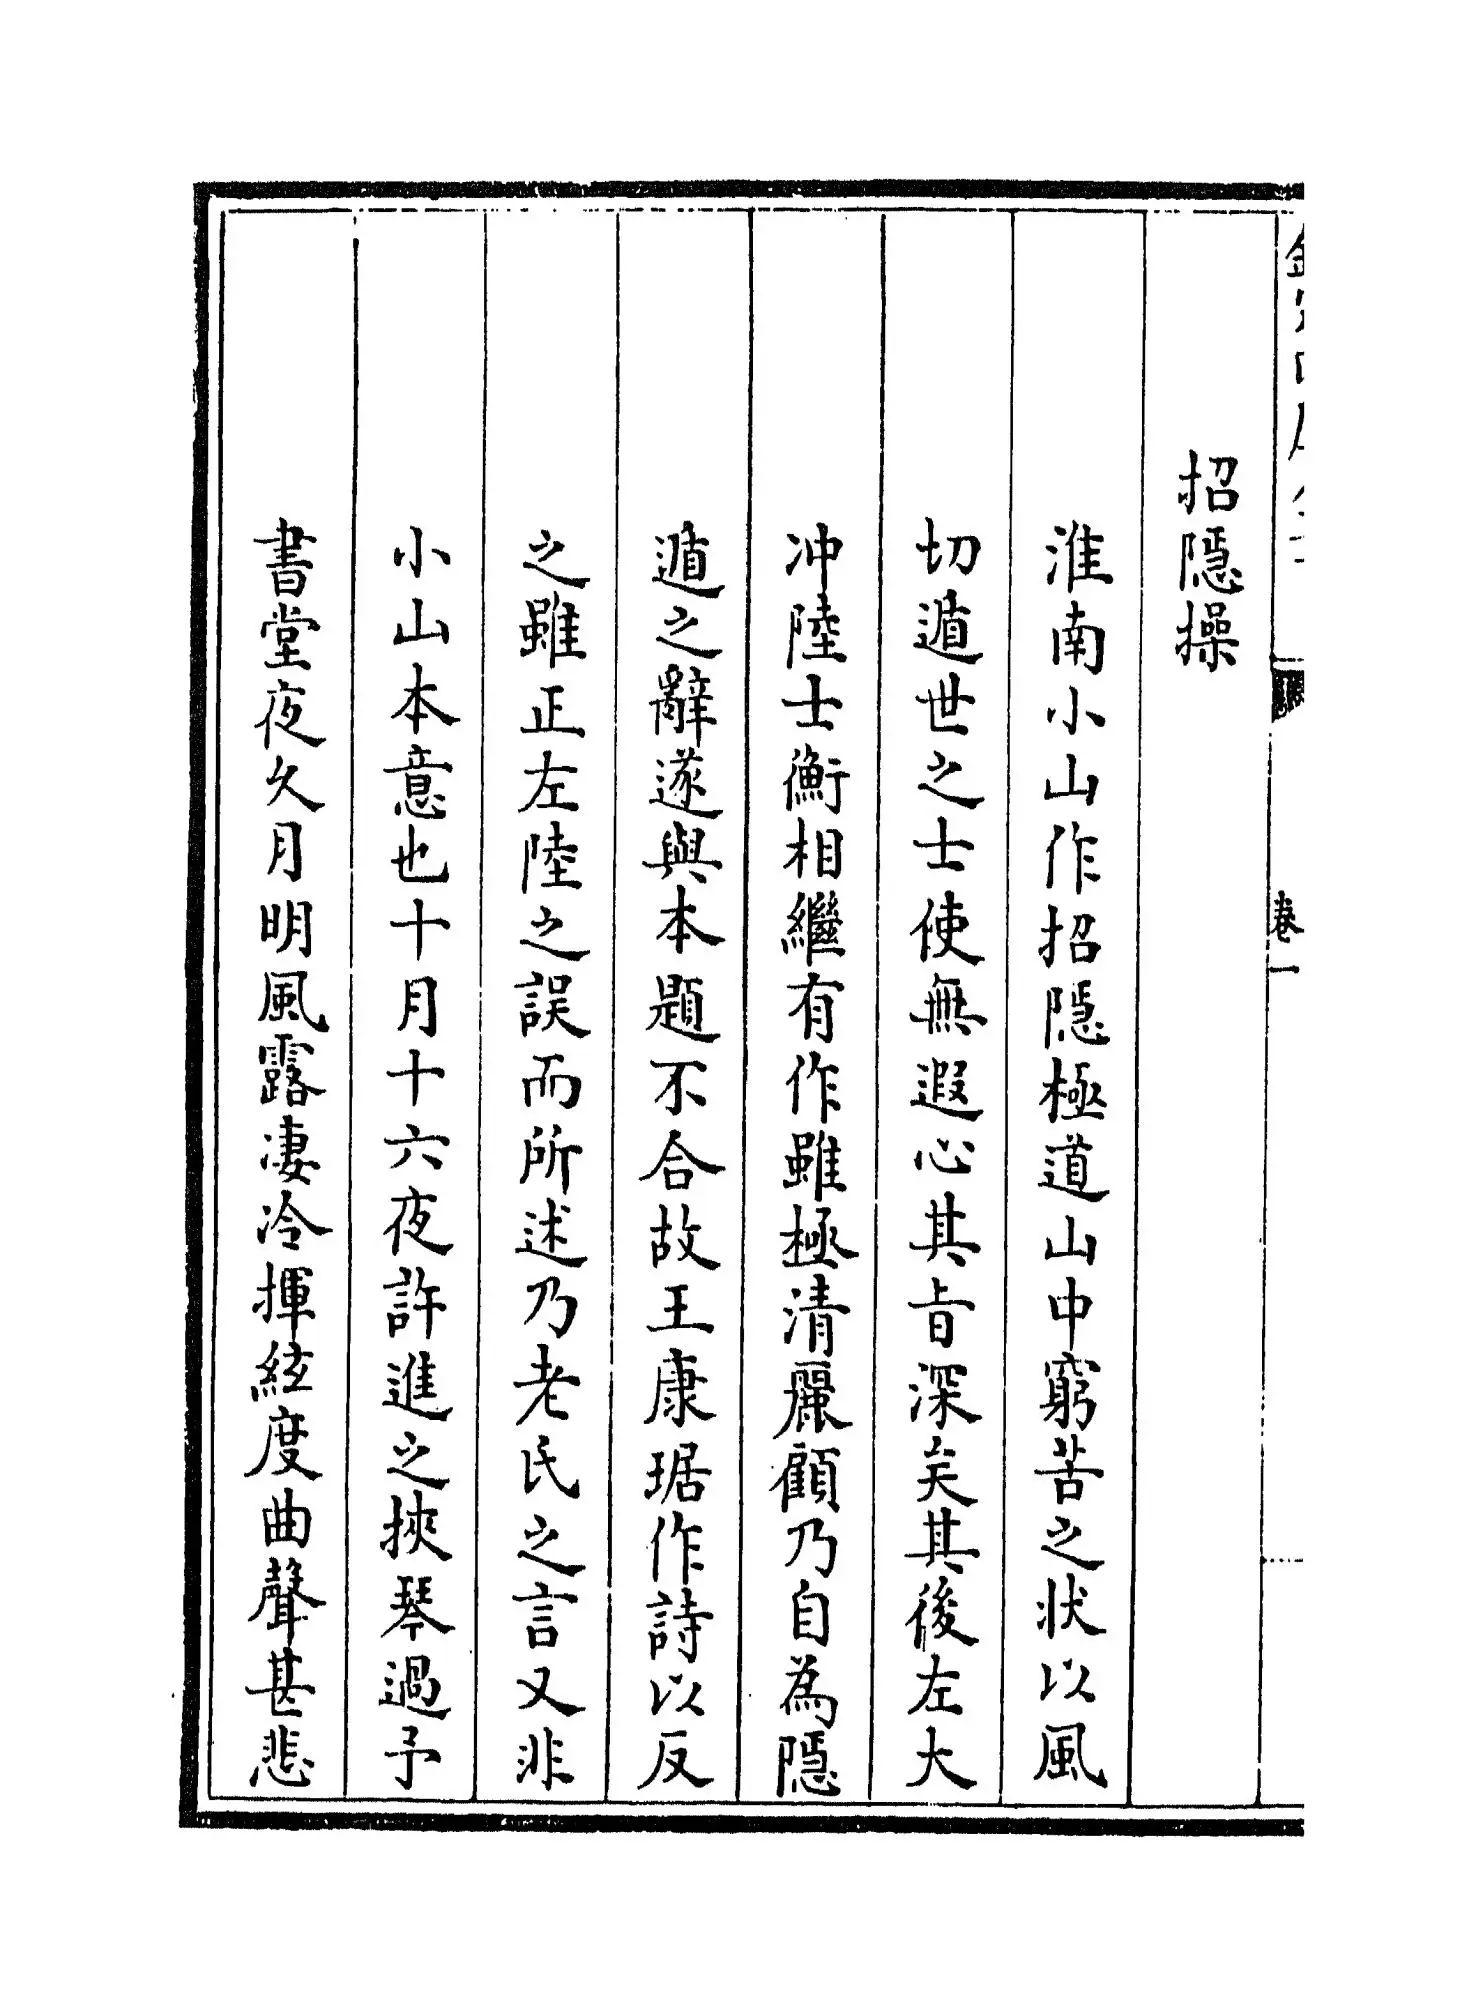 招隱操
淮南小山作招隱極道山中窮苦之狀以風
切遁世之士使無遐心其旨深矣其後左太
冲陸士衡相繼有作雖極清麗顧乃自為隱
遁之辭遂與本題不合故王康琚作詩以反
之雖正左陸之誤而所述乃老氏之言又非
小山本意也十月十六夜許進之挾琴過予
書堂夜久月明風露淒冷揮絃度曲聲甚悲
卷一